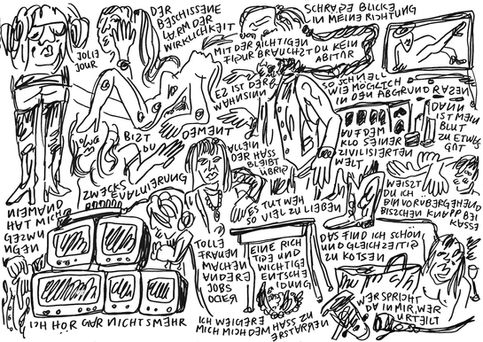 DER
BESCHISSENE
LÄRM DER
WIRKLICHKEIT
JOLIJ
JOUR
SCHRÄGE BLICKE
IN MEINE RICHTUNG
MIT DER RICHTIGEN
FIGUR BRAUCHST DU KEIN
ABITUR
EZ IST DER
WAHNSINN
SO SCHNELL
WIE MÖGLICH
IN DEN ABGRUND RAZEN
BIZT
DU
DEMENT
ALLEIN
DER HASS
BLEIBT
ÜBRIG
AUF DEM
KLO SEINER
ZIVILISIERTEN
WELT
DANN
IST MEIN
BLUT
ZU ETWAS
GUT
NIEMAND
HAT MICH
GEZWUN
GEN
ES TUT WEH
SO VIEL ZU LIEBEN
WEISZT
DU ICH
BIN VORÜBERGEHEND
BISZCHEN KNAPP BEI
KASSE
TOLLE
FRAUEN
MACHEN
ANDERE
JOBS
ODER
EINE RICH
TIGE UND
WICHTIGE
ENTSCHEI
DUNG
DAS FIND ICH SCHÖN
UND GLEICHZEITIG
ZU KOTZEN
ICH HÖR GAR NICHTS MEHR
ICH WEIGERE
MICH MIT DEM HASS ZU
ERSTARREN
WER SPRICHT
DA IN MIR, WER
URTEILT